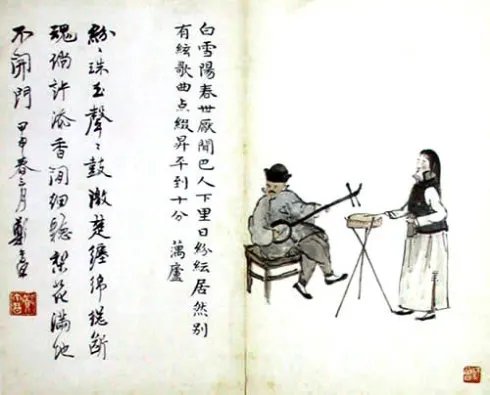 白雪陽春世厭聞巴人下里日紛紜居然別
有絃歌曲点綴昇平到十分 萬廬
紛〻珠玉聲〻鼓激楚纏綿總斷
魂倘許添香閒細聽梨花滿地
不開門 甲申春三月鄭